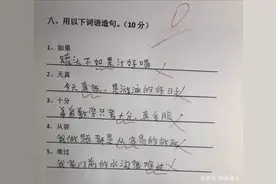 八、用以下词语造句。（10分）
1、如果
蔬菜不如果汁好喝
2、天真
今天真热，是游泳的好日子
3、十分
弟弟数学只考十分，真丢脸
4、从容
我做题都是从容易的做起
5、难过
我家门前的水沟很难过